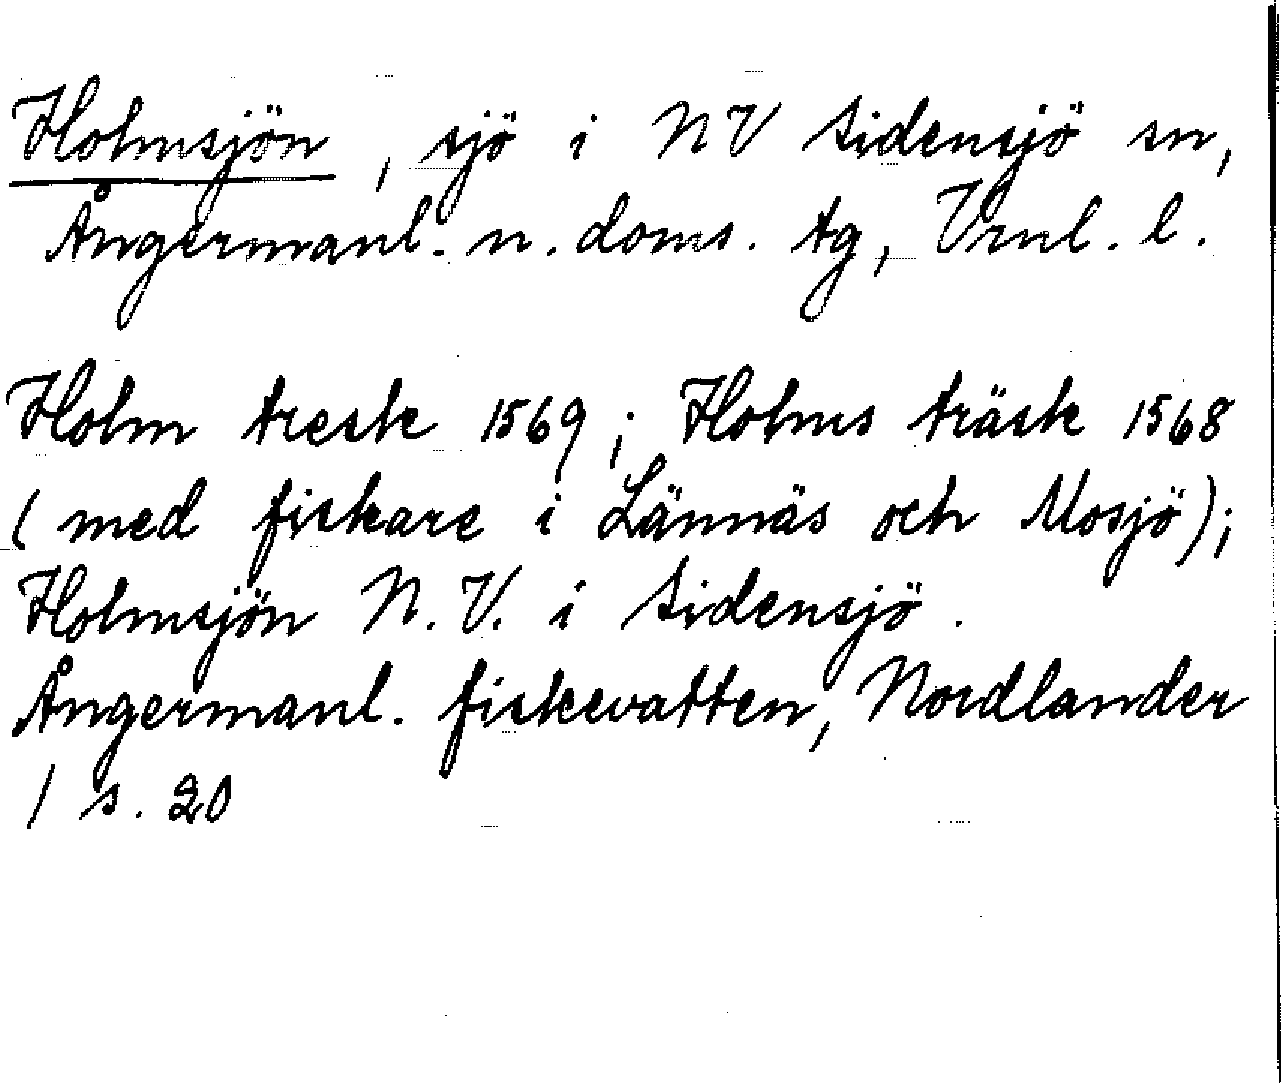 Holmsjön, sjö i NV Sidensjö sn,
Ångermanl. n. doms. tg, Vrnl. l.
Holm tresk 1569; Holms träsk 1568
(med fiskare i Lännäs och Mosjö);
Holmsjön N.V. i Sidensjö.
Ångermanl. fiskevatten, Nordlander
/ s. 20